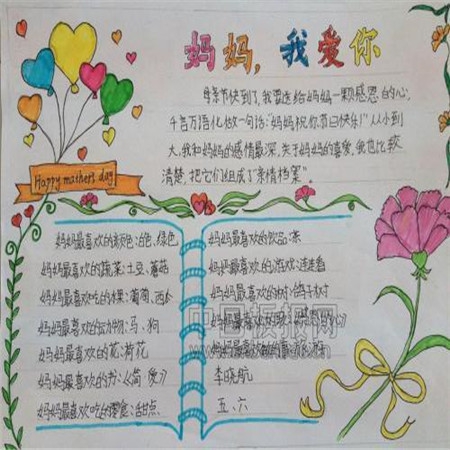 妈妈，我爱你
母亲节快到了，我要送给妈妈一颗感恩的心，
千言万语化做一句话："妈妈祝你节日快乐!"从小到
大，我和妈妈的感情最深，关于妈妈的喜爱，我也比较
清楚，把它们组成了"亲情档案"。
Happy mother's day
妈妈最喜欢的颜色：白色、绿色
妈妈最喜欢的蔬菜：土豆、蘑菇
妈妈最喜欢吃的水果：葡萄、西
妈妈最喜欢的动物：马、狗
妈妈最喜欢的花：荷花
妈妈最喜欢的书：《简·爱》
妈妈最喜欢吃的零食：甜点
妈妈最喜欢的饮品：茶
妈妈最喜欢的游戏：连连看
妈妈最喜欢的树：鸽子树
妈妈最喜欢
妈妈最喜欢做的事
李晓航
五、六